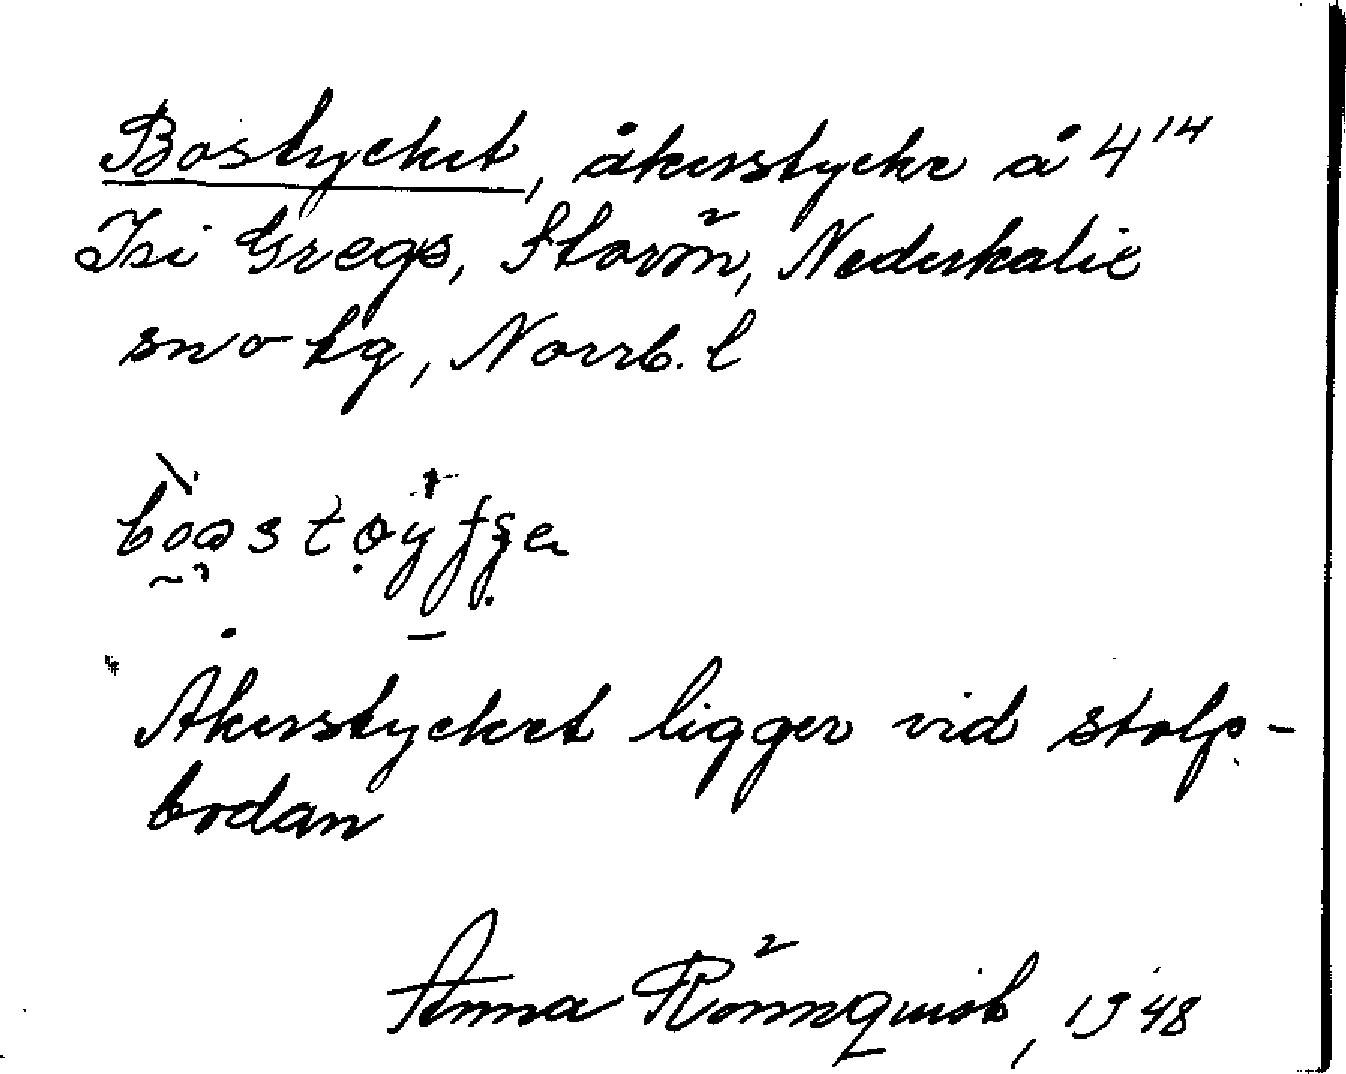 Bostycket, åkerstycke å 4¹⁴
Isi Gregs, Storön, Nederkalix
sn o tg, Norrb. l
Åkerstycket ligger vid stolp-
bodan
Anna Rönnquist, 1948